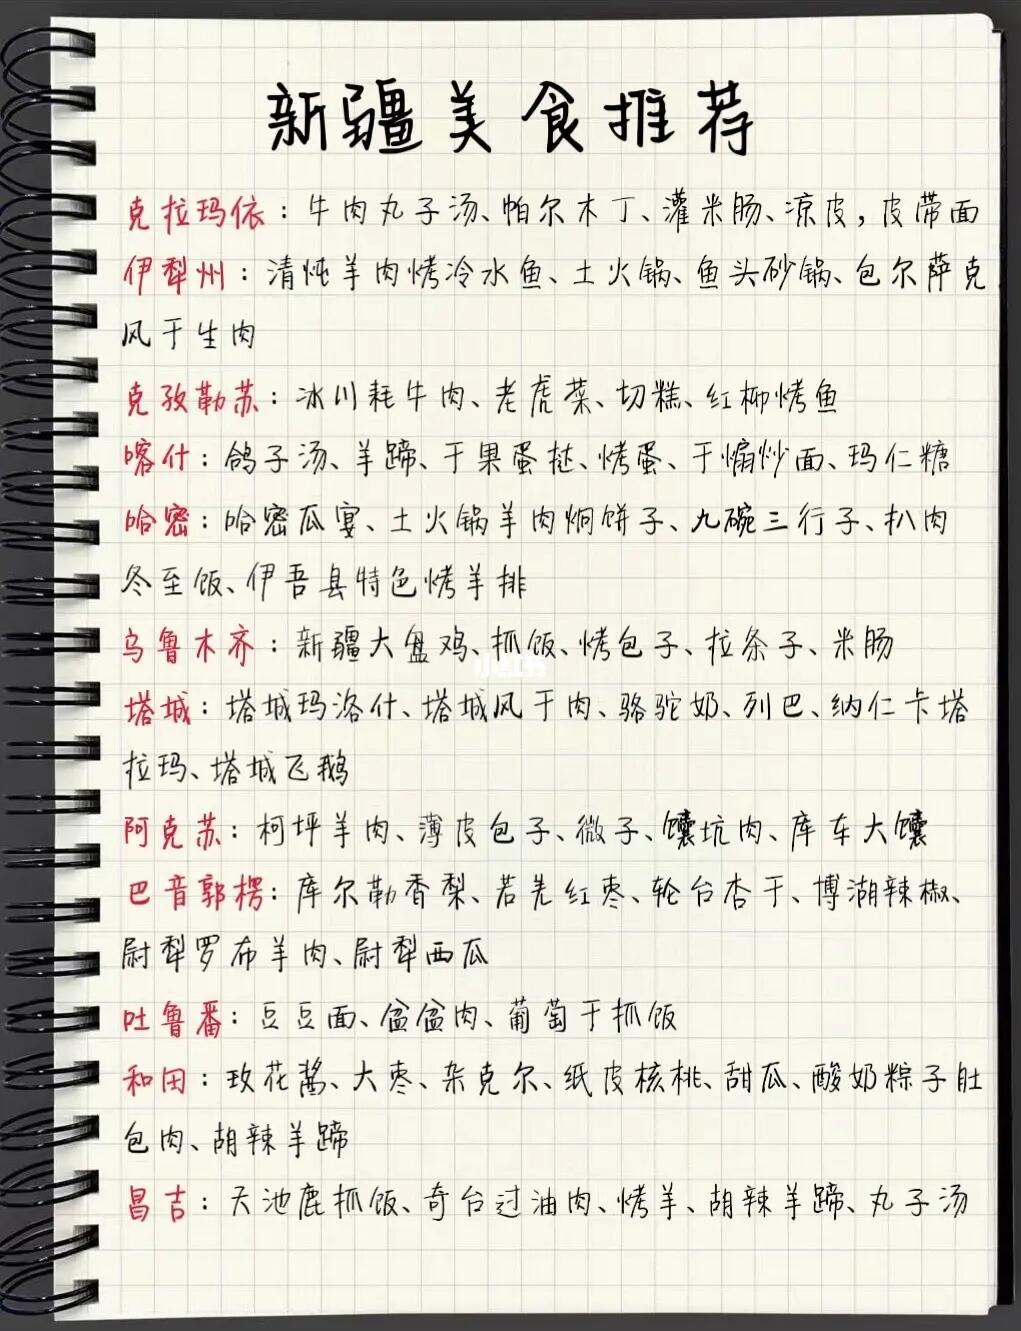 新疆美食推荐
克拉玛依：牛肉丸子汤、帕尔木丁、灌米肠、凉皮，皮带面
伊犁州：清炖羊肉烤冷水鱼、土火锅、鱼头砂锅、包尔萨克
风干生肉
克孜勒苏：冰川耗牛肉、老虎菜、切糕、红柳烤鱼
喀什：鸽子汤、羊蹄、干果蛋挞、烤蛋、干煸炒面、玛仁糖
哈密：哈密瓜宴、土火锅羊肉焖饼子、九碗三行子、扒肉
冬至饭、伊吾县特色烤羊排
乌鲁木齐：新疆大盘鸡、抓饭、烤包子、拉条子、米肠
小红书
塔城：塔城玛洛什、塔城风干肉、骆驼奶、列巴、纳仁卡塔
拉玛、塔城飞鹅
阿克苏：柯坪羊肉、薄皮包子、微子、馕坑肉、库车大馕
巴音郭楞：库尔勒香梨、若羌红枣、轮台杏干、博湖辣椒、
尉犁罗布羊肉、尉犁西瓜
吐鲁番：豆豆面、盆盆肉、葡萄干抓饭
和田：玫花酱、大枣、杂克尔、纸皮核桃、甜瓜、酸奶粽子肚
包肉、胡辣羊蹄
昌吉：天池鹿抓饭、奇台过油肉、烤羊、胡辣羊蹄、丸子汤